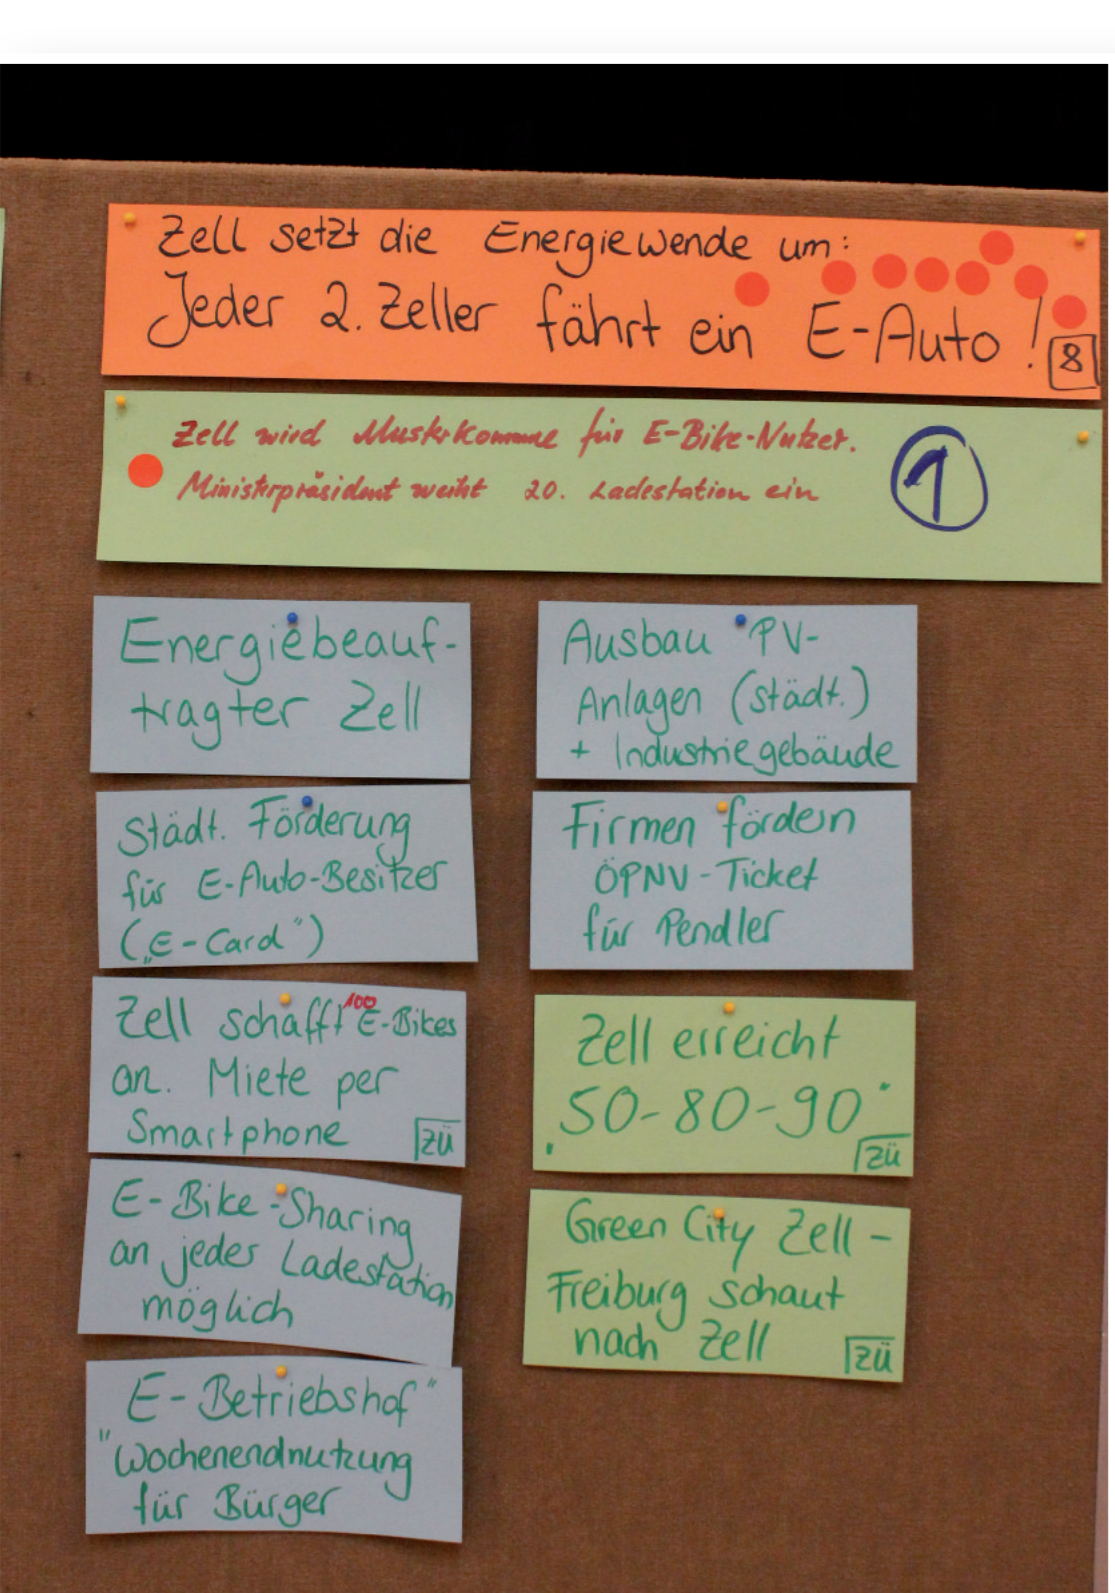 Zell setzt die Energiewende um:
Jeder 2. Zeller fährt ein E-Auto!
8
Zell wird Musterkommune für E-Bike-Nutzer.
Ministerpräsident weiht 20. Ladestation ein
1
Energiebeauf-
tragter Zell
Städt. Förderung
für E-Auto-Besitzer
(„E-Card")
Zell schafft 100 E-Bikes
an. Miete per
Smartphone
zü
E-Bike-Sharing
an jeder Ladestation
möglich
E-Betriebshof"
"Wochenendnutzung
für Bürger
Ausbau PV-
Anlagen (städt.)
+ Industriegebäude
Firmen fördern
ÖPNV-Ticket
für Pendler
Zell erreicht
„50-80-90"
zü
Green City Zell -
Freiburg schaut
nach Zell
zü